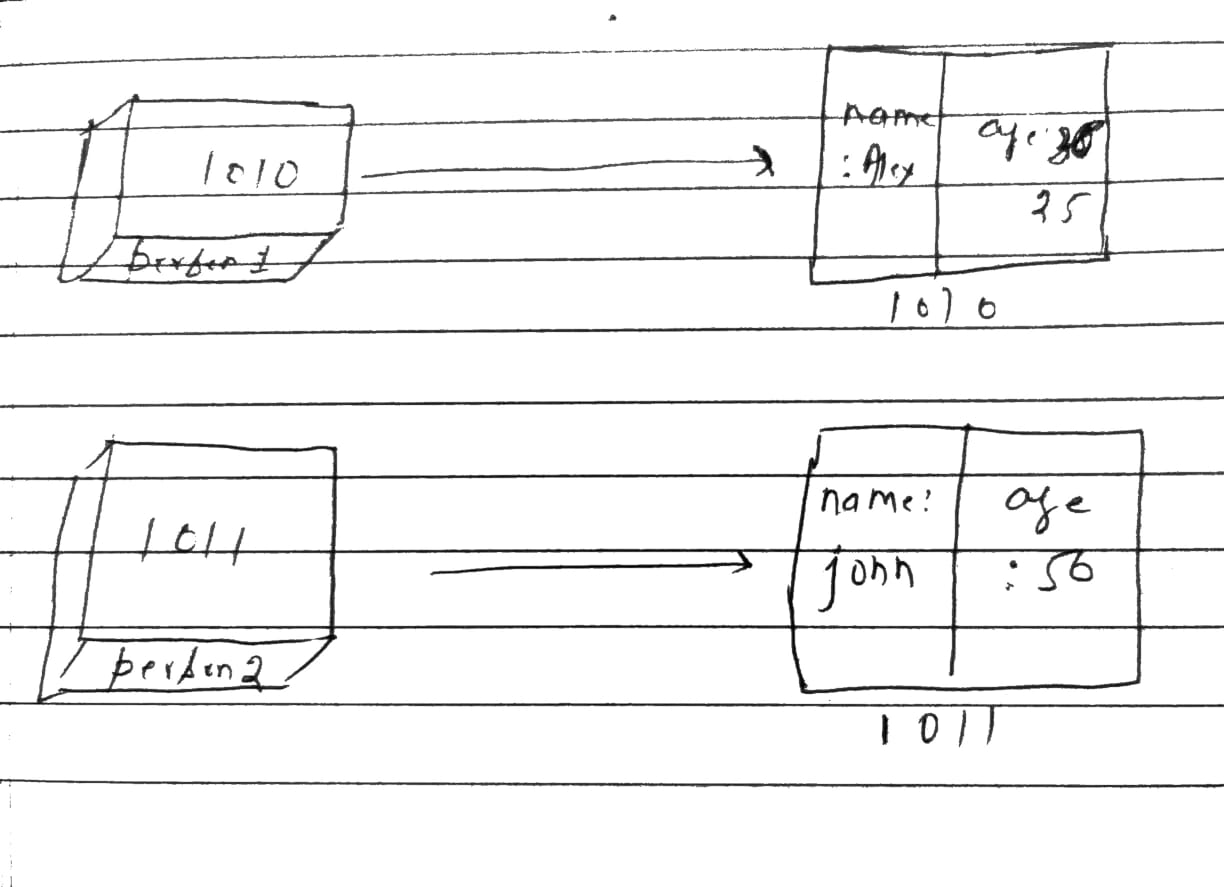 1010
person 1
name
: Alex
age: 30
25
1010
1011
person 2
name:
john
age
: 50
1011